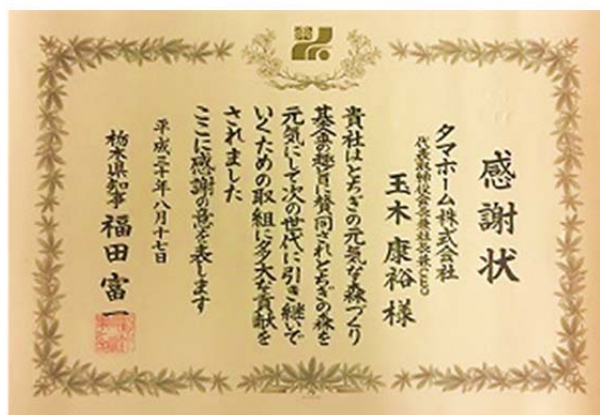 感謝状
タマホーム株式会社
代表取締役会長兼社長兼CEO
玉木康裕様
貴社はとちぎの元気な森づくり
基金の趣旨に賛同されとちぎの森を
元気にして次の世代に引き継いで
いくための取組に多大な貢献を
されました
ここに感謝の意を表します
平成三十年八月十七日
栃木県知事 福田富一